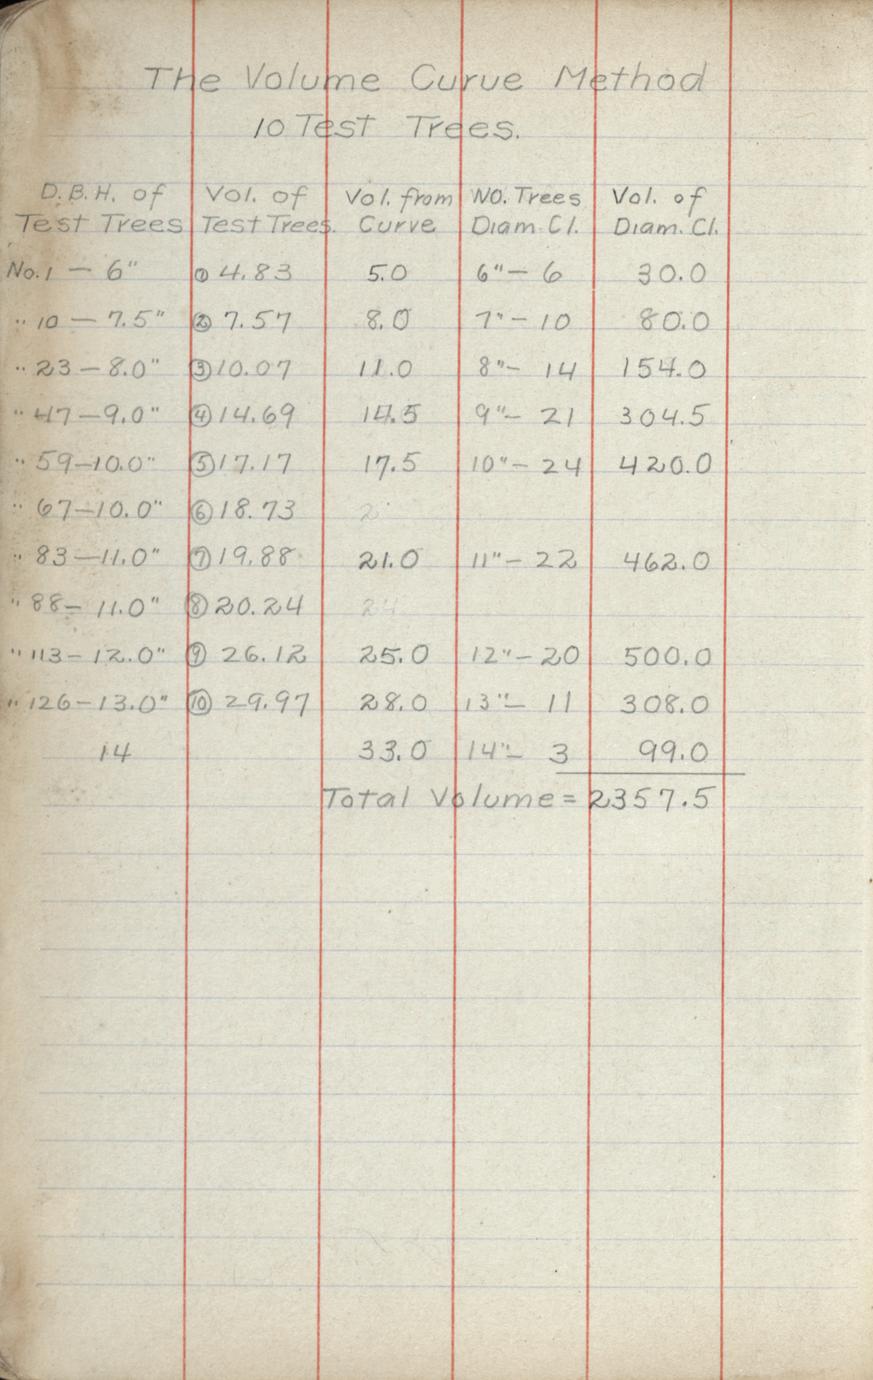 The Volume Curve Method
10 Test Trees.
D.B.H. of Vol. of Vol. from NO. Trees Vol. of
Test Trees Test Trees. Curve Diam. Cl. Diam. Cl.
No. 1 — 6" ① 4.83 5.0 6" — 6 30.0
" 10 — 7.5" ② 7.57 8.0 7" — 10 80.0
" 23 — 8.0" ③ 10.07 11.0 8" — 14 154.0
" 47 — 9.0" ④ 14.69 14.5 9" — 21 304.5
" 59 — 10.0" ⑤ 17.17 17.5 10" — 24 420.0
" 67 — 10.0" ⑥ 18.73
" 83 — 11.0" ⑦ 19.88 21.0 11" — 22 462.0
" 88 — 11.0" ⑧ 20.24
" 113 — 12.0" ⑨ 26.12 25.0 12" — 20 500.0
" 126 — 13.0" ⑩ 29.97 28.0 13" — 11 308.0
14 33.0 14" — 3 99.0
Total Volume = 2357.5